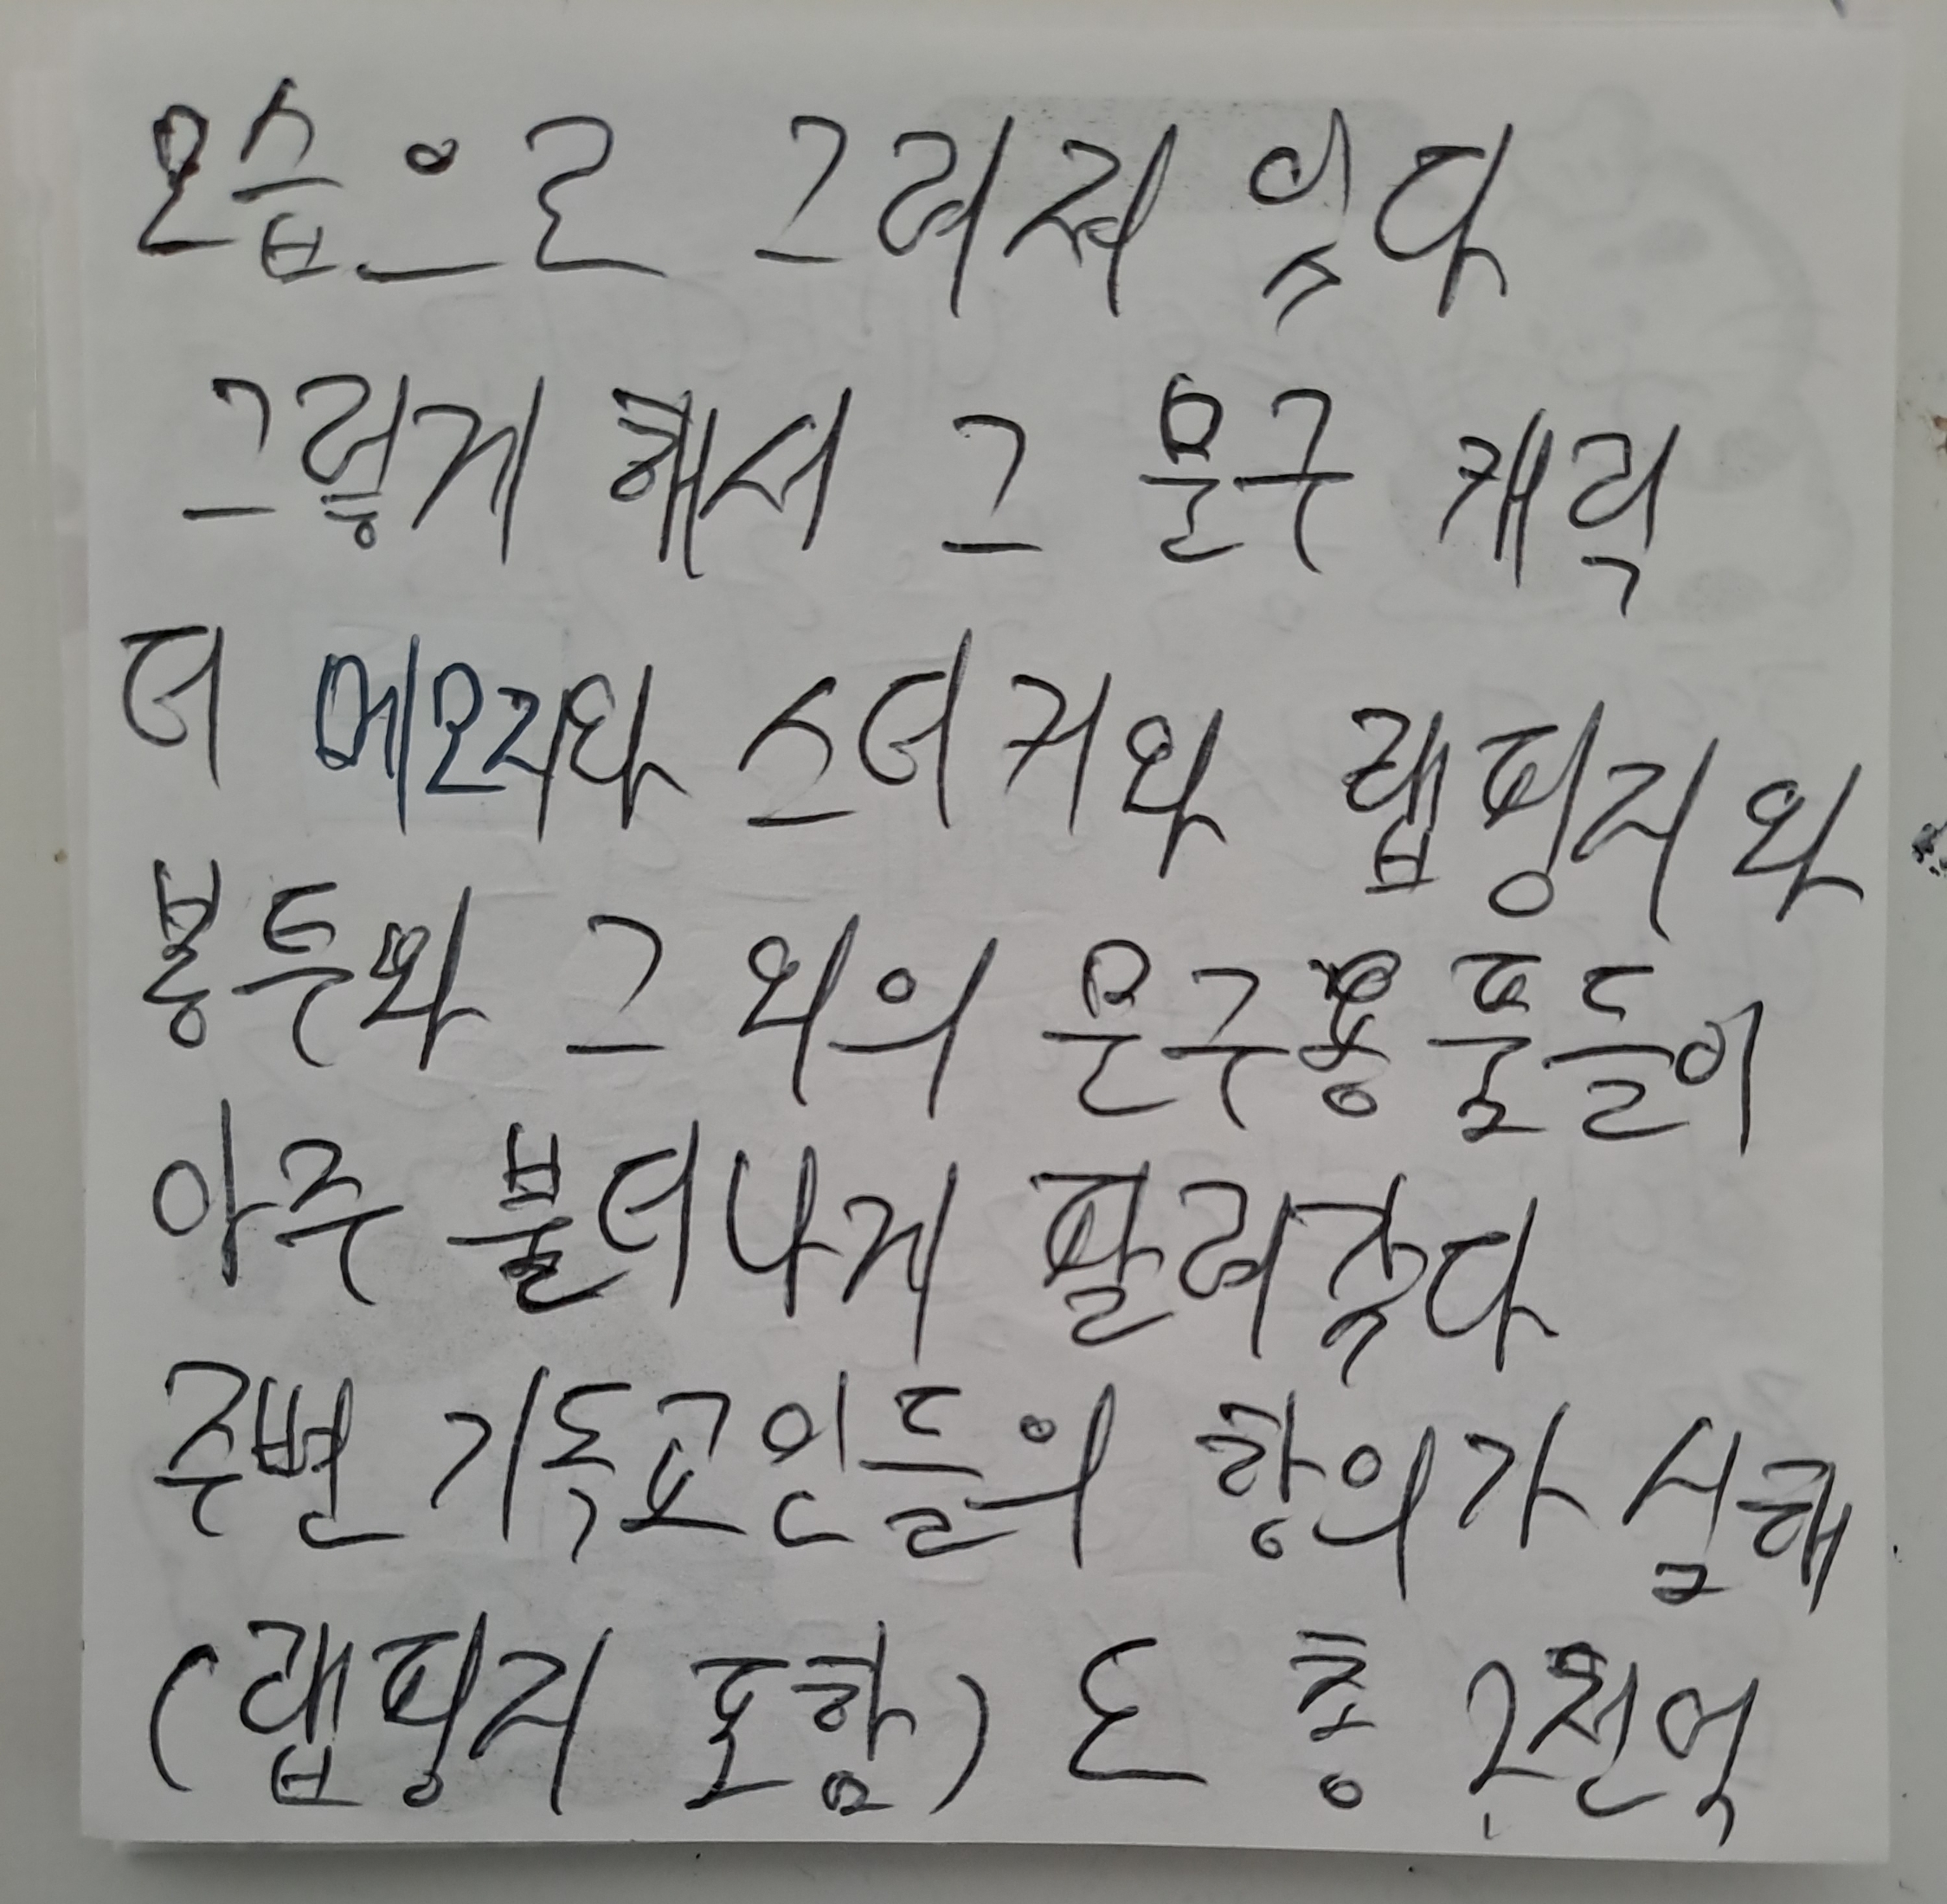 모습으로 그려져 있다
그렇게 해서 그 문구 캐릭
터 메모지와 스티커와 랩핑지와
봉투와 그 외의 문구용품들이
아주 불티나게 팔려갔다
주변 기독교인들의 항의가 심해
(랩핑지 포함) 든 총 2천억